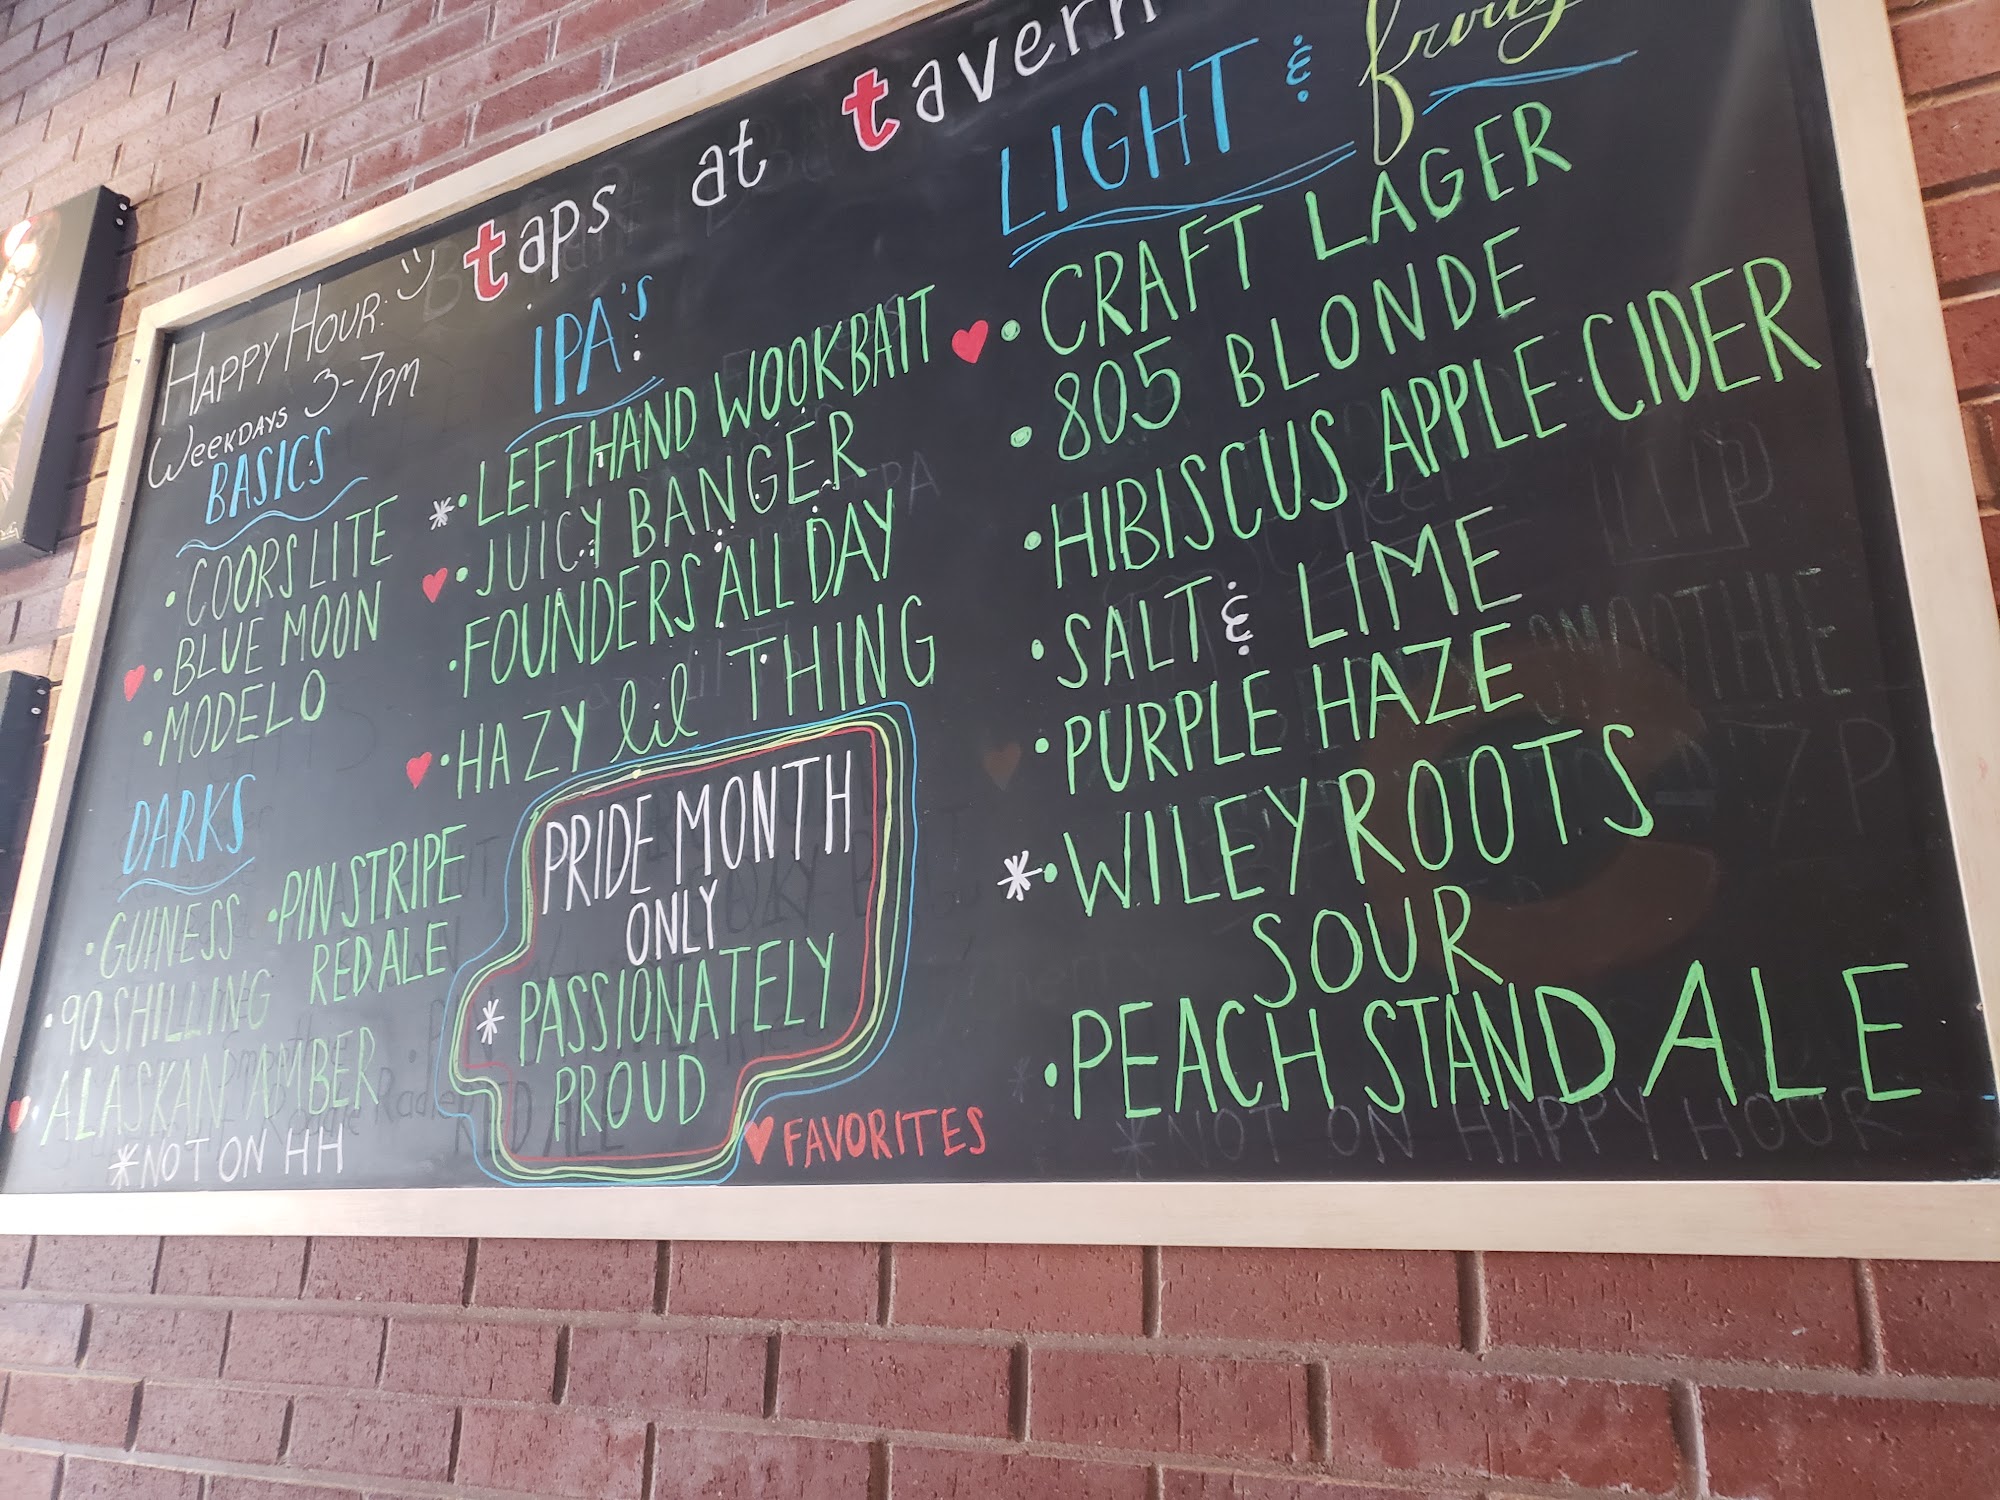 taps at tavern
HAPPY HOUR:
WEEKDAYS 3-7PM
BASICS
• COORS LITE
♥ • BLUE MOON
• MODELO
DARKS
• GUINESS
• 90 SHILLING
♥ • ALASKAN AMBER
• PINSTRIPE
RED ALE
*NOT ON HH
IPA's
* • LEFT HAND WOOKBAIT
♥ • JUICY BANGER
• FOUNDERS ALL DAY
♥ • HAZY lil THING
PRIDE MONTH
ONLY
* PASSIONATELY
PROUD
♥ FAVORITES
LIGHT & fruity
♥ • CRAFT LAGER
• 805 BLONDE
• HIBISCUS APPLE CIDER
• SALT & LIME
• PURPLE HAZE
* • WILEY ROOTS
SOUR
• PEACH STAND ALE
*NOT ON HAPPY HOUR